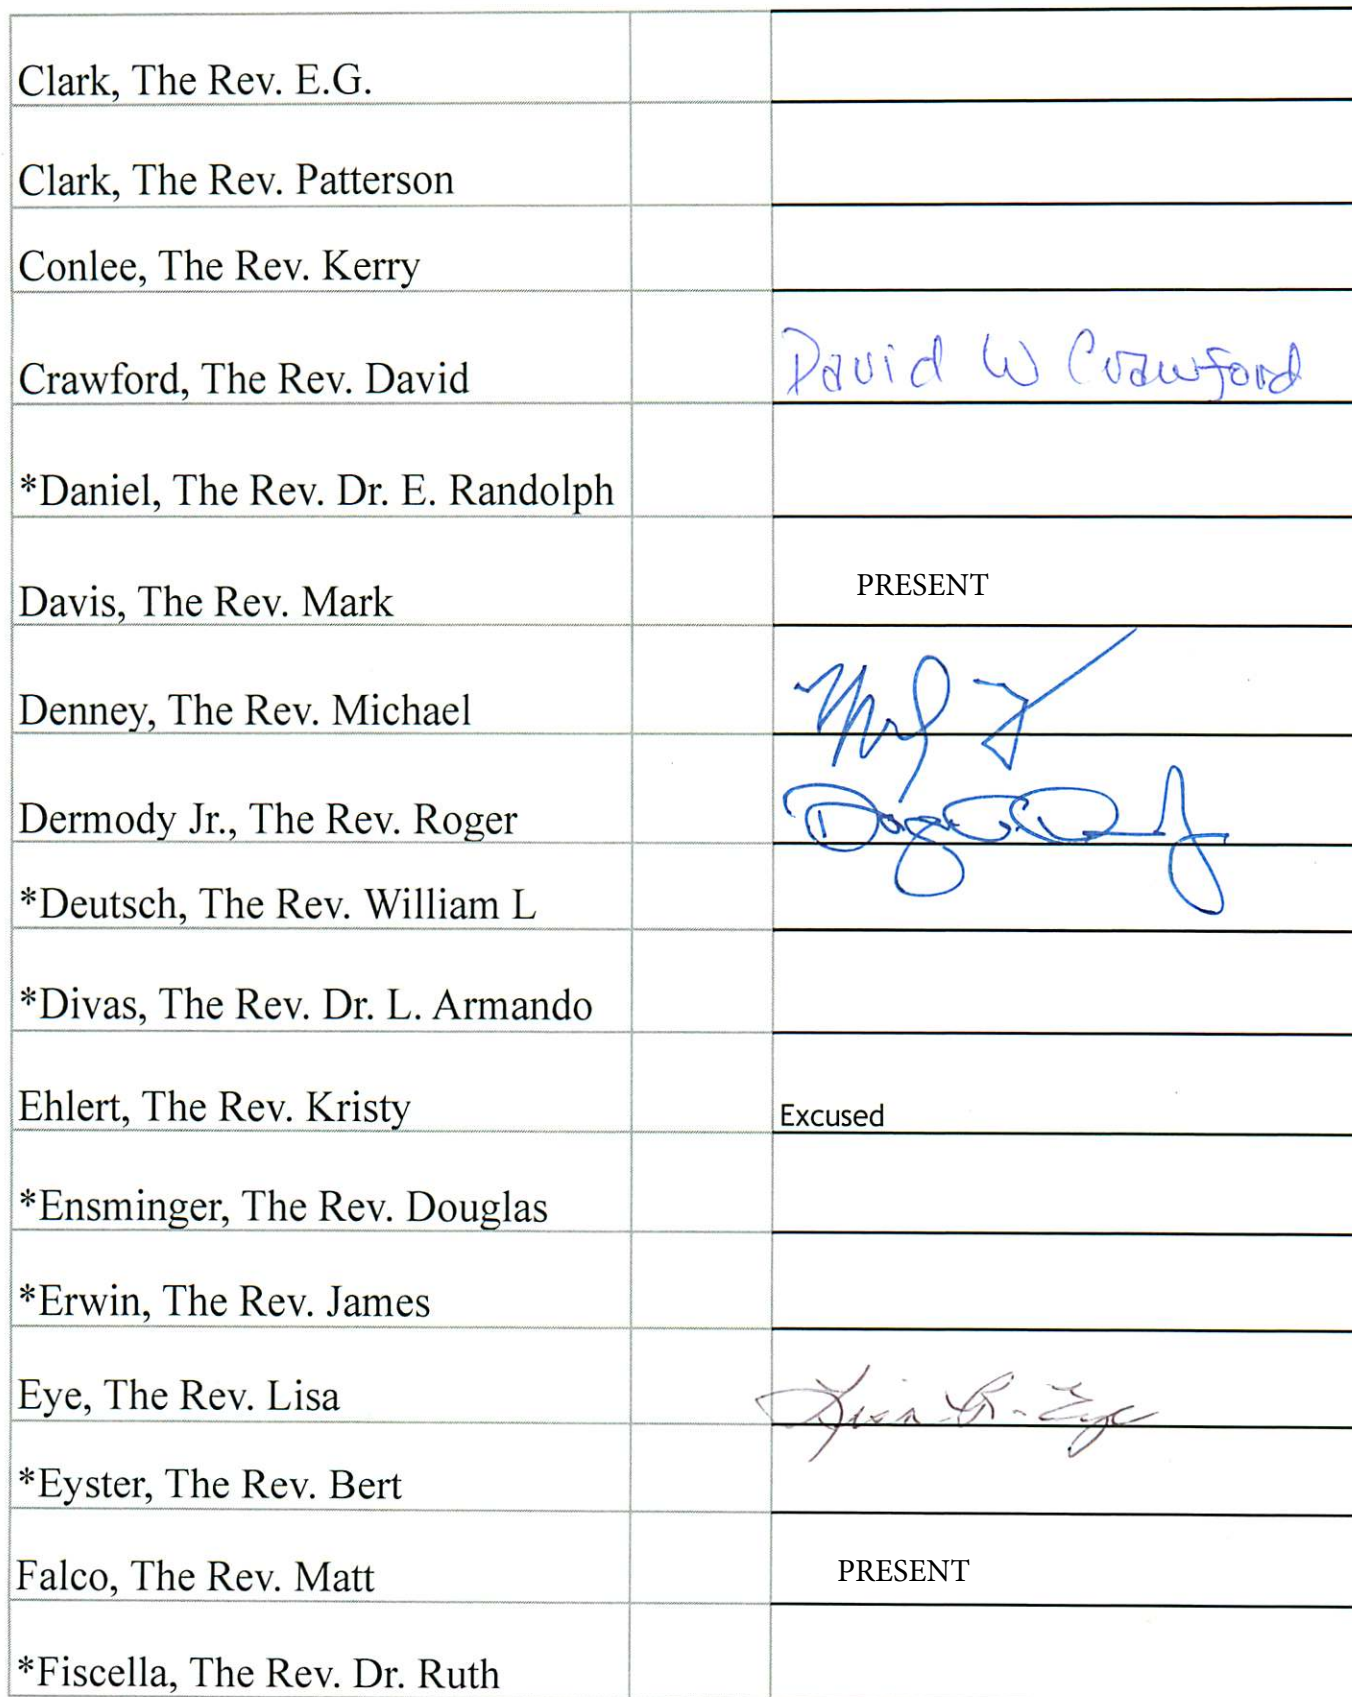 Clark, The Rev. E.G.
Clark, The Rev. Patterson
Conlee, The Rev. Kerry
Crawford, The Rev. David David W Crawford
*Daniel, The Rev. Dr. E. Randolph
Davis, The Rev. Mark PRESENT
Denney, The Rev. Michael
Dermody Jr., The Rev. Roger
*Deutsch, The Rev. William L
*Divas, The Rev. Dr. L. Armando
Ehlert, The Rev. Kristy Excused
*Ensminger, The Rev. Douglas
*Erwin, The Rev. James
Eye, The Rev. Lisa Lisa Eye
*Eyster, The Rev. Bert
Falco, The Rev. Matt PRESENT
*Fiscella, The Rev. Dr. Ruth